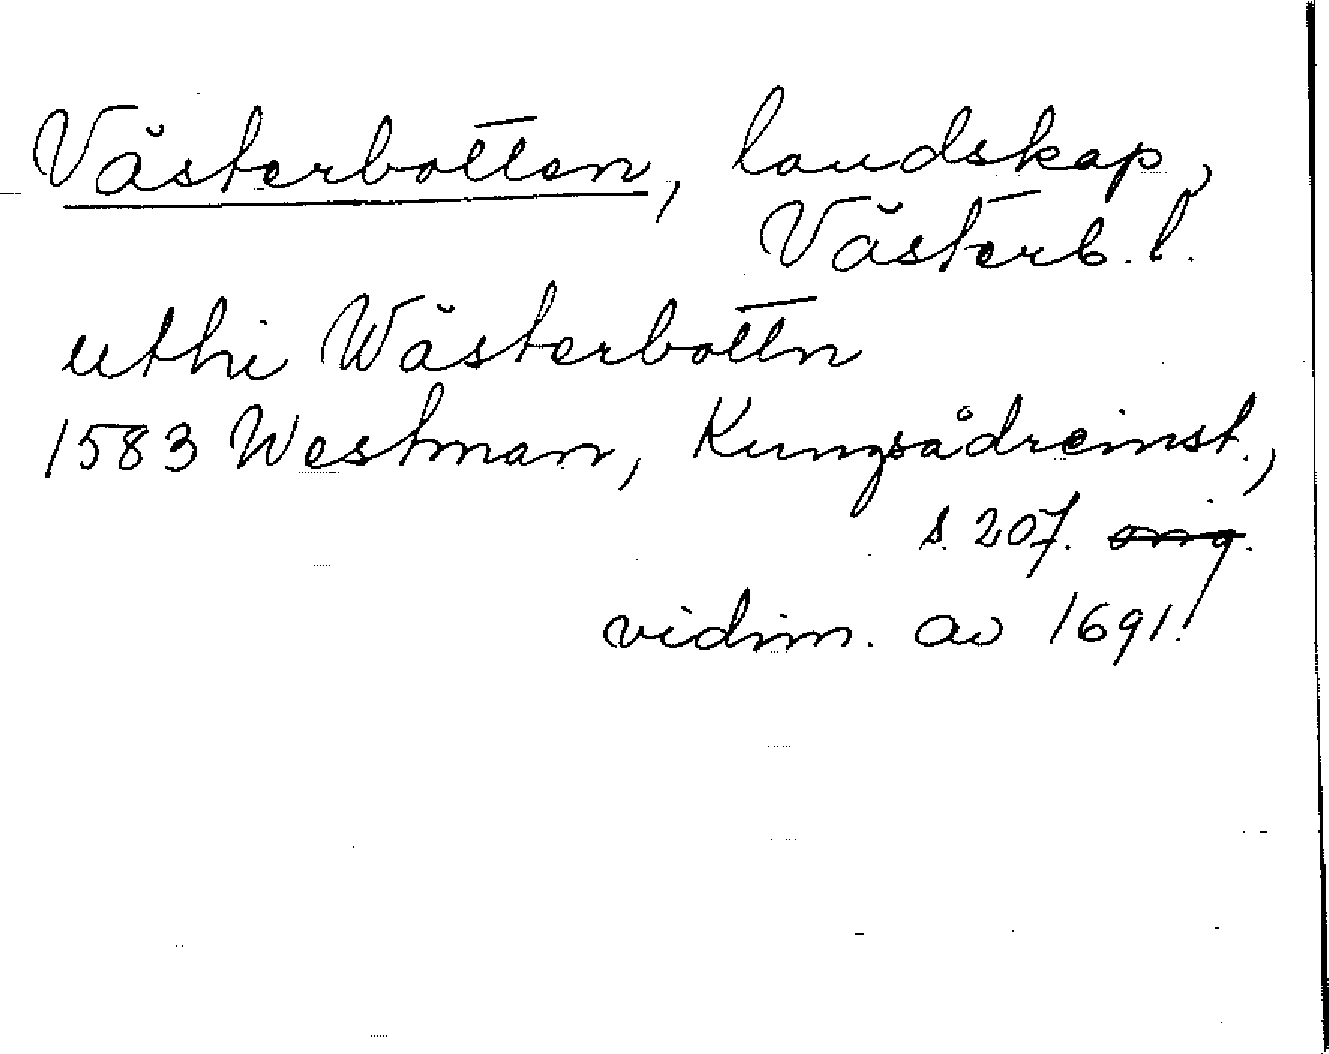 Västerbotten, landskap,
Västerb. l.
uthi Wästerbottn
1583 Westman, Kungsådreinst.,
s. 207. orig.
vidim. av 1691.